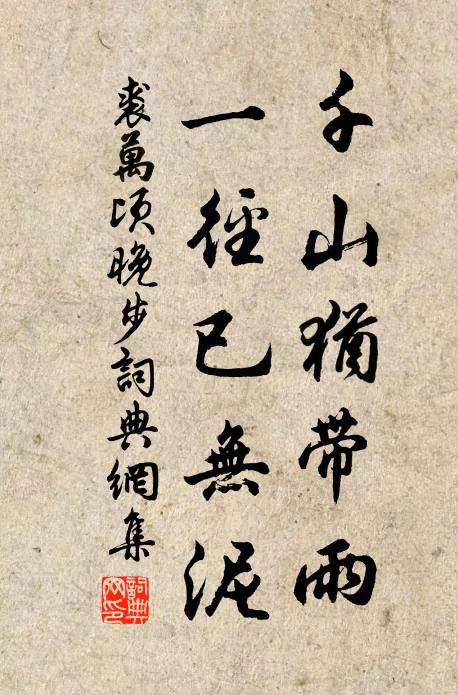 千山猶帶雨
一徑已無泥
裘萬頃晚步詞典網集
詞典網印